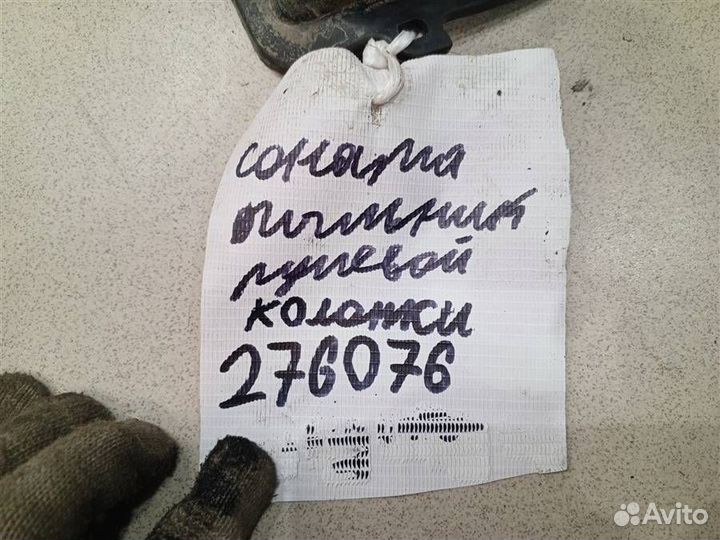 соната
пыльник
рулевой
колонки
276076
Avito